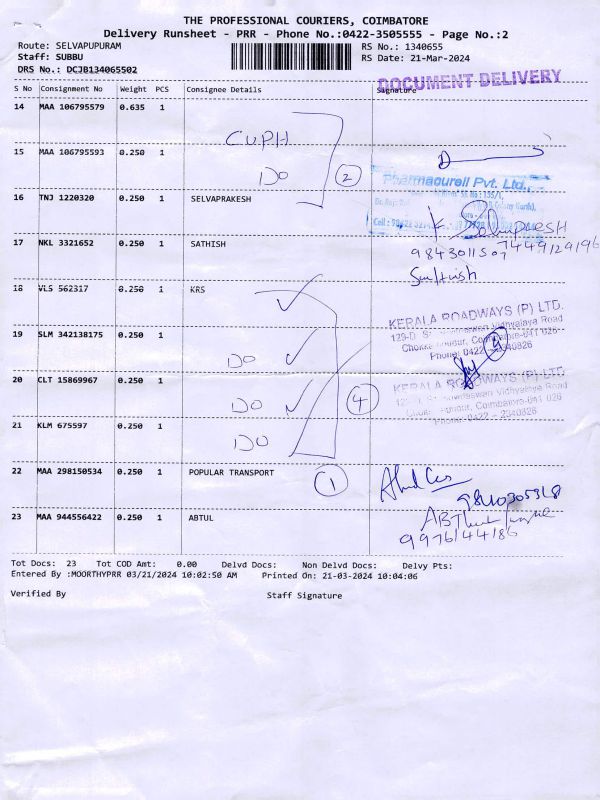 THE PROFESSIONAL COURIERS, COIMBATORE
Delivery Runsheet - PRR - Phone No.:0422-3505555 - Page No.:2
Route: SELVAPUPURAM RS No.: 1340655
Staff: SUBBU RS Date: 21-Mar-2024
DRS No.: DCJB134065502
DOCUMENT DELIVERY
S No Consignment No Weight PCS Consignee Details Signature
14 MAA 106795579 0.635 1
CUPH
15 MAA 106795593 0.250 1
DO 2
Pharmacureil Pvt. Ltd.,
16 TNJ 1220320 0.250 1 SELVAPRAKESH
K.
7449129196
17 NKL 3321652 0.250 1 SATHISH
9843011507
Sathish
18 VLS 562317 0.250 1 KRS
KERALA ROADWAYS (P) LTD.
19 SLM 342138175 0.250 1
Vidhyalaya Road
Coimbatore-641 026
Phone: 0422 - 2340826
DO
20 CLT 15869967 0.250 1
KERALA ROADWAYS (P) LTD
Vidhyalaya Road
Coimbatore-641 026
Phone: 0422 - 2340826
DO 4
21 KLM 675597 0.250 1
DO
22 MAA 298150534 0.250 1 POPULAR TRANSPORT
1
23 MAA 944556422 0.250 1 ABTUL
9976144186
Tot Docs: 23 Tot COD Amt: 0.00 Delvd Docs: Non Delvd Docs: Delvy Pts:
Entered By :MOORTHYPRR 03/21/2024 10:02:50 AM Printed On: 21-03-2024 10:04:06
Verified By Staff Signature